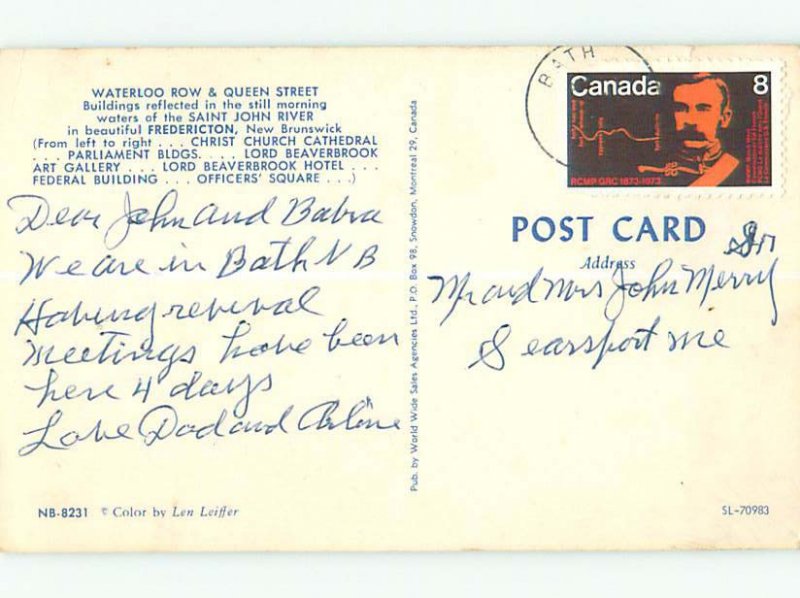 WATERLOO ROW & QUEEN STREET
Buildings reflected in the still morning
waters of the SAINT JOHN RIVER
in beautiful FREDERICTON, New Brunswick
(From left to right . . . CHRIST CHURCH CATHEDRAL
. . . PARLIAMENT BLDGS. . . . LORD BEAVERBROOK
ART GALLERY . . . LORD BEAVERBROOK HOTEL . . .
FEDERAL BUILDING . . . OFFICERS' SQUARE . . .)
Dear John and Babra
We are in Bath N B
Having revival
meetings have been
here 4 days
Love Dad and Arline
NB-8231 © Color by Len Leiffer
Pub. by World Wide Sales Agencies Ltd., P.O. Box 98, Snowdon, Montreal 29, Canada
BATH
Canada 8
RCMP GRC 1873-1973
POST CARD
Address
Mr and Mrs John Merry
Searsport me
SL-70983